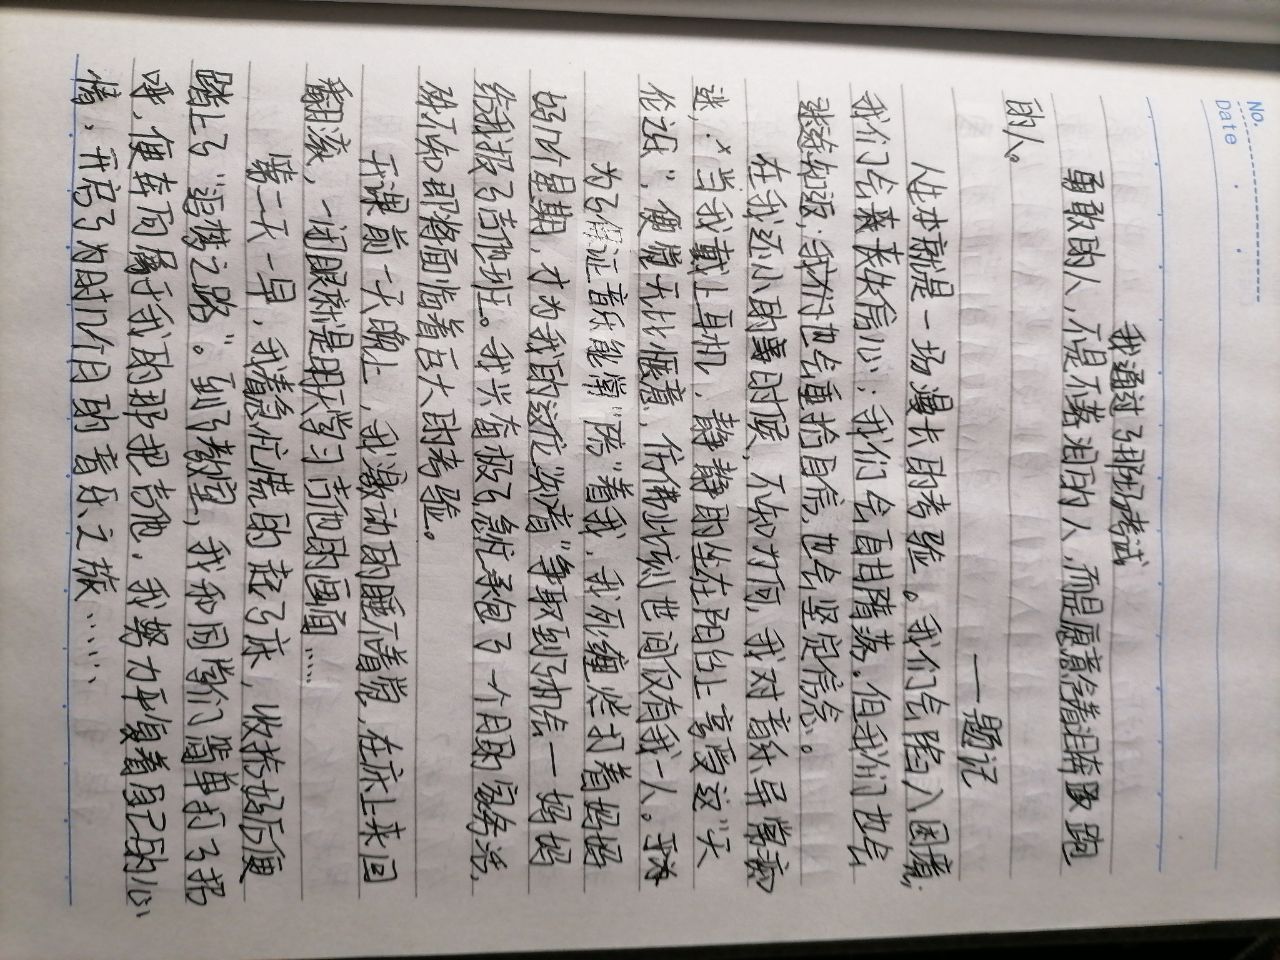 No.
Date
我通过了那场考试
勇敢的人,不是不落泪的人,而是愿意含着泪奔跑
的人。
——题记
人生本就是一场漫长的考验。我们会陷入困境;
我们会来丧失信心;我们会自甘堕落。但我们也会
迷途知返;我们也会重拾自信,也会坚定信念。
在我还小的时候,不知为何,我对音乐异常痴
迷,当我戴上耳机,静静的坐在阳台上享受这"天
伦认",便觉无比惬意,仿佛此刻世间仅有我一人。
为了保证音乐能常"陪"着我,我死缠烂打着妈妈
好几个星期,才为我的这份"争取到了机会—妈妈
给我报了吉他班。我兴奋极了,承包了一个月的家务活,
殊不知即将面临着巨大的考验。
开课前一天晚上,我激动的睡不着觉,在床上来回
翻滚,一闭眼就是明天学习吉他的画面……
第二天一早,我着急忙慌的起了床,收拾好后便
踏上了"追梦之路"。到了教室,我和同学们简单打了招
呼,便奔向属于我的那把吉他,我努力平复着自己的心
情,开启了为时几个月的音乐之旅……